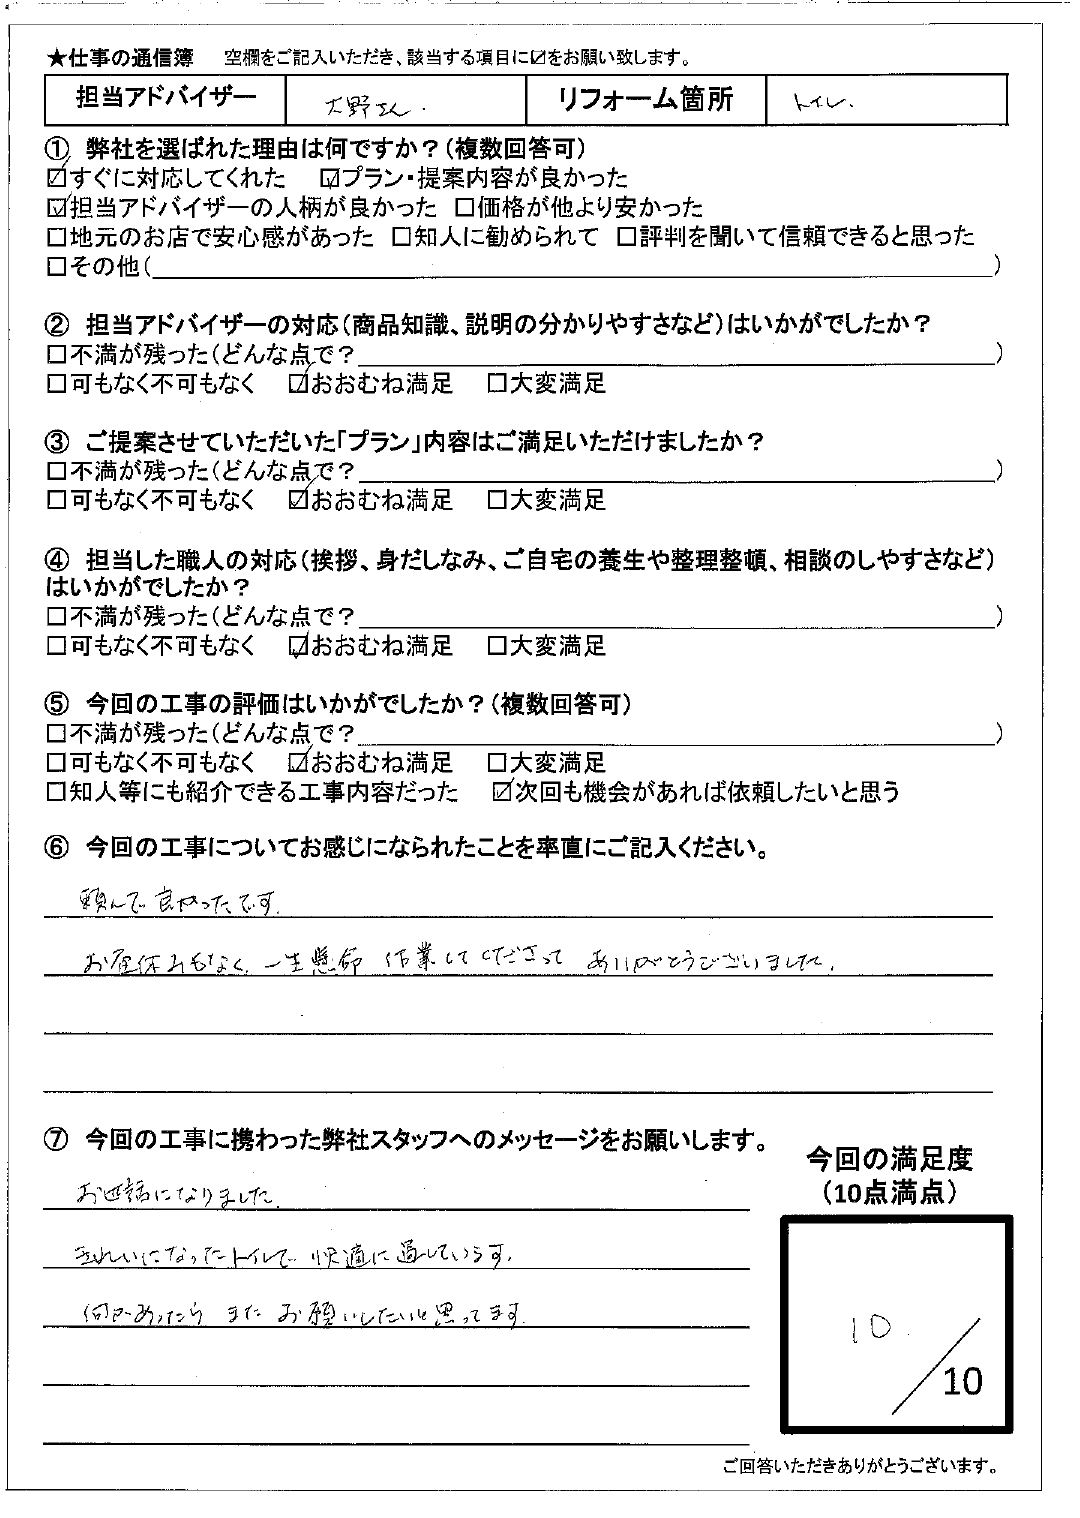 ★仕事の通信簿 空欄をご記入いただき、該当する項目に☑をお願い致します。
担当アドバイザー 大野さん. リフォーム箇所 トイレ.
① 弊社を選ばれた理由は何ですか？(複数回答可)
☑すぐに対応してくれた ☑プラン・提案内容が良かった
☑担当アドバイザーの人柄が良かった □価格が他より安かった
□地元のお店で安心感があった □知人に勧められて □評判を聞いて信頼できると思った
□その他( )
② 担当アドバイザーの対応(商品知識、説明の分かりやすさなど)はいかがでしたか？
□不満が残った(どんな点で？ )
□可もなく不可もなく ☑おおむね満足 □大変満足
③ ご提案させていただいた「プラン」内容はご満足いただけましたか？
□不満が残った(どんな点で？ )
□可もなく不可もなく ☑おおむね満足 □大変満足
④ 担当した職人の対応(挨拶、身だしなみ、ご自宅の養生や整理整頓、相談のしやすさなど)
はいかがでしたか？
□不満が残った(どんな点で？ )
□可もなく不可もなく ☑おおむね満足 □大変満足
⑤ 今回の工事の評価はいかがでしたか？(複数回答可)
□不満が残った(どんな点で？ )
□可もなく不可もなく ☑おおむね満足 □大変満足
□知人等にも紹介できる工事内容だった ☑次回も機会があれば依頼したいと思う
⑥ 今回の工事についてお感じになられたことを率直にご記入ください。
頼んで良かったです.
お昼休みもなく、一生懸命 作業してくださって ありがとうございました.
⑦ 今回の工事に携わった弊社スタッフへのメッセージをお願いします。
お世話になりました.
きれいになったトイレで 快適に過しています.
何かあったら また お願いしたいと思ってます.
今回の満足度
(10点満点)
10.
/10
ご回答いただきありがとうございます。